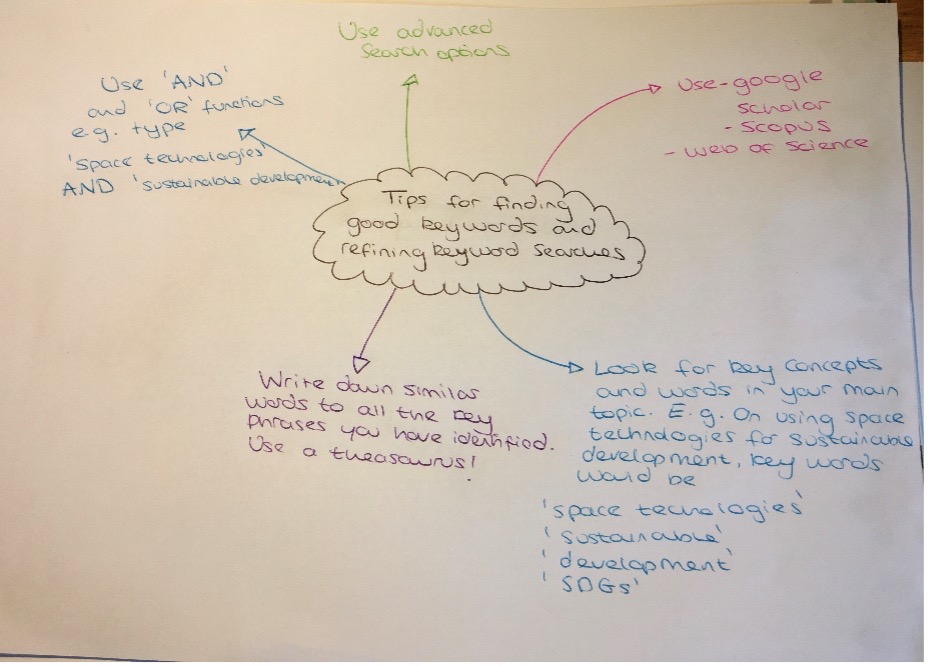 Tips for finding
good keywords and
refining keyword searches
Use advanced
search options
Use - google
scholar
- scopus
- web of science
Use 'AND'
and 'OR' functions
e.g. type
'space technologies'
AND 'sustainable development'
Write down similar
words to all the key
phrases you have identified.
Use a theasaurus!
Look for key concepts
and words in your main
topic. E.g. On using space
technologies for sustainable
development, key words
would be
'space tecnologies'
'sustainable'
'development'
'SDGs'